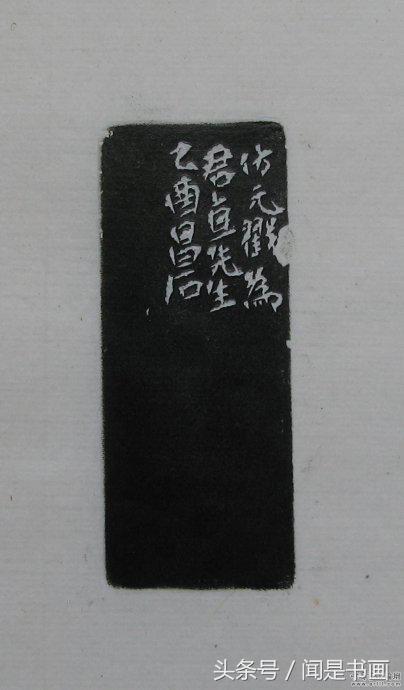 仿元戳為
君直先生
乙酉昌石
头条号 / 闻是书画